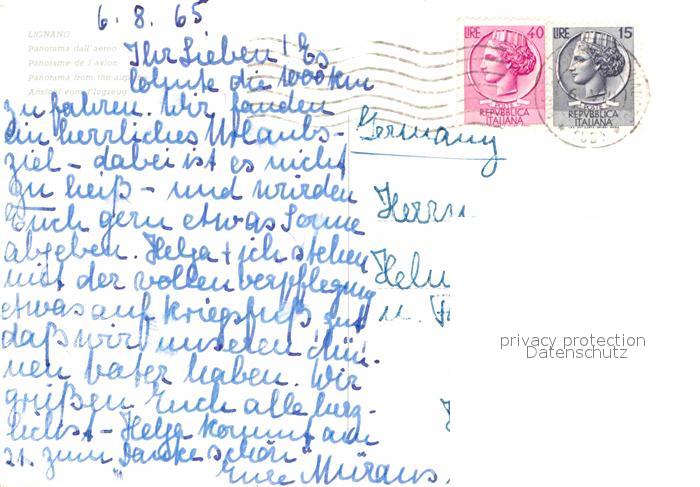 6. 8. 65
LIGNANO
Panorama dall'aereo
Panorame de l'avion
Panorama from the
Ansicht vom Flugzeug
Ihr Lieben! Es
lohnte die 1000 km
zu fahren. Wir fanden
ein herrliches Urlaubs-
ziel - dabei ist es nicht
zu heiß - und würden
Euch gern etwas Sonne
abgeben. Helga + ich stehen
mit der vollen verpflegung
etwas auf Kriegsfuß gut
daß wir unseren
nen Vater haben. Wir
grüßen Euch alle herz-
lichst - Helga kommt am
21. zum Dankeschön"
Eure
LIRE 40
POSTE
REPVBBLICA
ITALIANA
LIRE 15
POSTE
REPVBBLICA
ITALIANA
Germany
Herrn
Helm
u.
privacy protection
Datenschutz